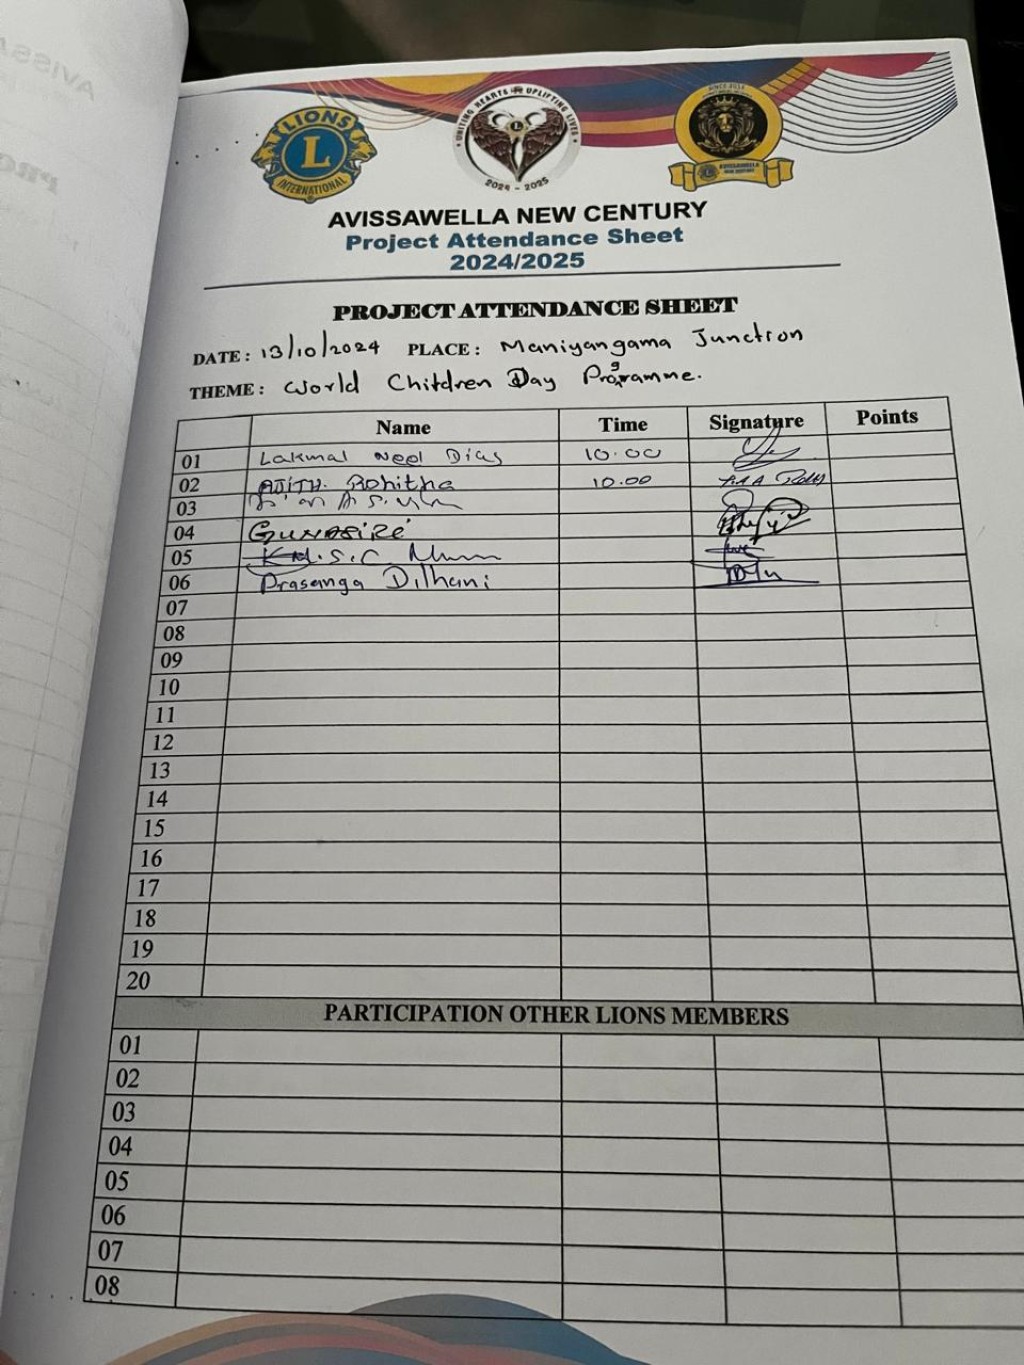 LIONS
L
INTERNATIONAL
UNITING HEARTS UPLIFTING LIVES
L
2024 - 2025
SINCE 2014
AVISSAWELLA
NEW CENTURY
AVISSAWELLA NEW CENTURY
Project Attendance Sheet
2024/2025
PROJECT ATTENDANCE SHEET
DATE: 13/10/2024 PLACE: Maniyangama Junction
THEME: World Children Day Programme.
Name Time Signature Points
01 Lakmal Neel Dias 10.00
02 AJITH. Rohitha 10.00
03
04 GUNASIRE
05 K.M.S.C
06 Prasanga Dilhani
07
08
09
10
11
12
13
14
15
16
17
18
19
20
PARTICIPATION OTHER LIONS MEMBERS
01
02
03
04
05
06
07
08